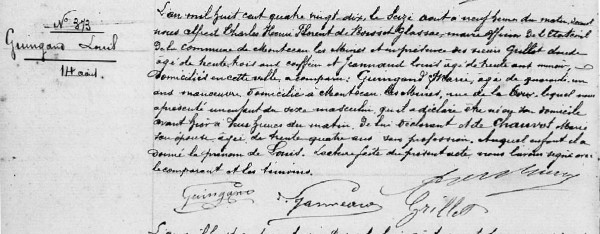 N° 373
Guingand Louis
14 août.
L'an mil huit cent quatre vingt dix, le seize août à neuf heures du matin, devant
nous Alfred Charles Henri Florent de officier de l'état civil
de la commune de Montceau les Mines et en présence des sieurs Grillot
âgé de trente trois ans coiffeur et Jeannaud Louis âgé de trente ans
domiciliés en cette ville, a comparu: Guingand Marie, âgé de quarante un
ans manœuvre, domicilié à Montceau les Mines, rue de la lequel nous
a présenté un enfant du sexe masculin, qu'il a déclaré être né en son domicile
avant hier à heures du matin de lui déclarant et de Chauvot Marie
son épouse âgée de trente quatre ans sans profession. Auquel enfant il a
donné le prénom de Louis. Lecture faite du présent acte, nous l'avons signé avec
le comparant et les témoins.
Guingand Grillot